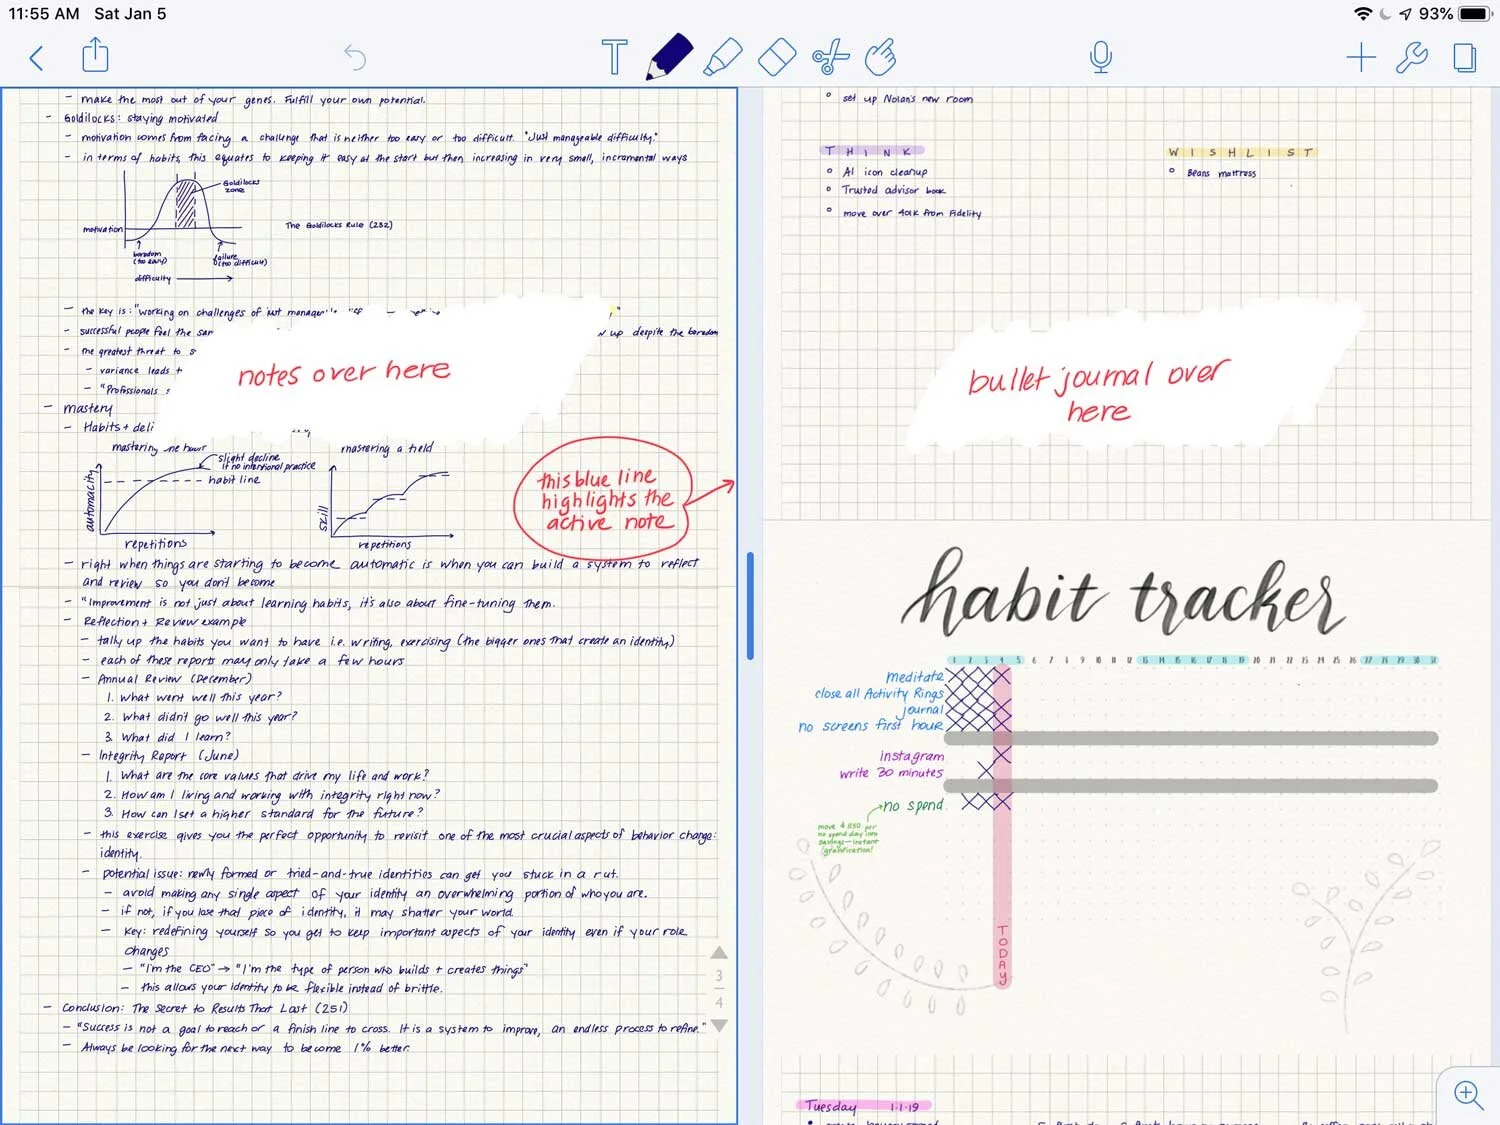 11:55 AM Sat Jan 5
93%
- make the most out of your genes. Fulfill your own potential.
- Goldilocks: staying motivated
- motivation comes from facing a challenge that is neither too easy or too difficult. "Just manageable difficulty."
- in terms of habits, this equates to keeping it easy at the start but then increasing in very small, incremental ways
Goldilocks
zone
motivation
The Goldilocks Rule (232)
boredom
(too easy)
failure
(too difficult)
difficulty
- the key is: "working on challenges of just
- successful people feel the
up despite the boredom
- the greatest threat to
- variance leads
- "Professionals
notes over here
- mastery
- Habits +
mastering
mastering a field
slight decline
if no intentional practice
habit line
automacity
skill
repetitions
repetitions
this blue line
highlights the
active note
- right when things are starting to become automatic is when you can build a system to reflect
and review so you don't become
- "Improvement is not just about learning habits, it's also about fine-tuning them.
- Reflection + Review example
- tally up the habits you want to have i.e. writing, exercising (the bigger ones that create an identity)
- each of these reports may only take a few hours
- Annual Review (December)
1. What went well this year?
2. What didn't go well this year?
3. What did I learn?
- Integrity Report (June)
1. What are the core values that drive my life and work?
2. How am I living and working with integrity right now?
3. How can I set a higher standard for the future?
- this exercise gives you the perfect opportunity to revisit one of the most crucial aspects of behavior change:
identity.
- potential issue: newly formed or tried-and-true identities can get you stuck in a rut.
- avoid making any single aspect of your identity an overwhelming portion of who you are.
- if not, if you lose that piece of identity, it may shatter your world.
- Key: redefining yourself so you get to keep important aspects of your identity even if your role
changes
- "I'm the CEO" → "I'm the type of person who builds + creates things"
- this allows your identity to be flexible instead of brittle.
- Conclusion: The Secret to Results That Last (251)
- "Success is not a goal to reach or a finish line to cross. It is a system to improve, an endless process to refine."
- Always be looking for the next way to become 1% better.
3
4
set up Nolan's new room
THINK
AI icon cleanup
Trusted advisor book
move over 401k from Fidelity
WISHLIST
Beans mattress
bullet journal over
here
habit tracker
1 2 3 4 5 6 7 8 9 10 11 12 13 14 15 16 17 18 19 20 21 22 23 24 25 26 27 28 29 30 31
meditate
close all Activity Rings
journal
no screens first hour
instagram
write 30 minutes
no spend
per
no spend day into
savings—instant
gratification!
TODAY
Tuesday 1.1.19